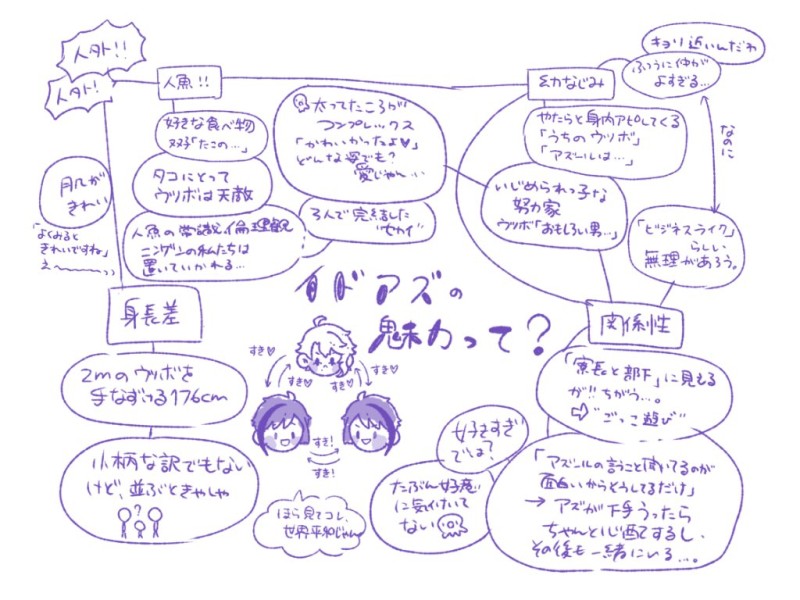 人外!!
人外!
人魚!!
好きな食べ物
双子「たこの…」
タコにとって
ウツボは天敵
人魚の常識、倫理観
ニンゲンの私たちは
置いていかれる…
太ってたころが
コンプレックス
「かわいかったよ♡」
どんな姿でも?
愛じゃん…
3人で完結した
"セカイ"
幼なじみ
キョリ近いんだわ
ふつうに仲が
よすぎる…
なのに
やたらと身内アピしてくる
「うちのウツボ」
「アズールは…」
いじめられっ子な
努力家
ウツボ「おもしろい男…」
「ビジネスライク」
らしい
無理があろう。
肌が
きれい
「よくみると
きれいですね」
え〜
身長差
2mのウツボを
手なずける176cm
小柄な訳でもない
けど、並ぶときゃしゃ
?
イドアズの
魅力って?
すき♡
すき♡
すき♡
すき♡
すき!
すき!
ほら見てコレ、
世界平和じゃん
関係性
「寮長と部下」に見える
が!!ちがう…。
⇨"ごっこ遊び"
好きすぎ
では?
たぶん好意
に気付いて
ない
「アズールの言うこと聞いてるのが
面白いからそうしてるだけ」
→アズが下手うったら
ちゃんと心配するし、
その後も一緒にいる…。